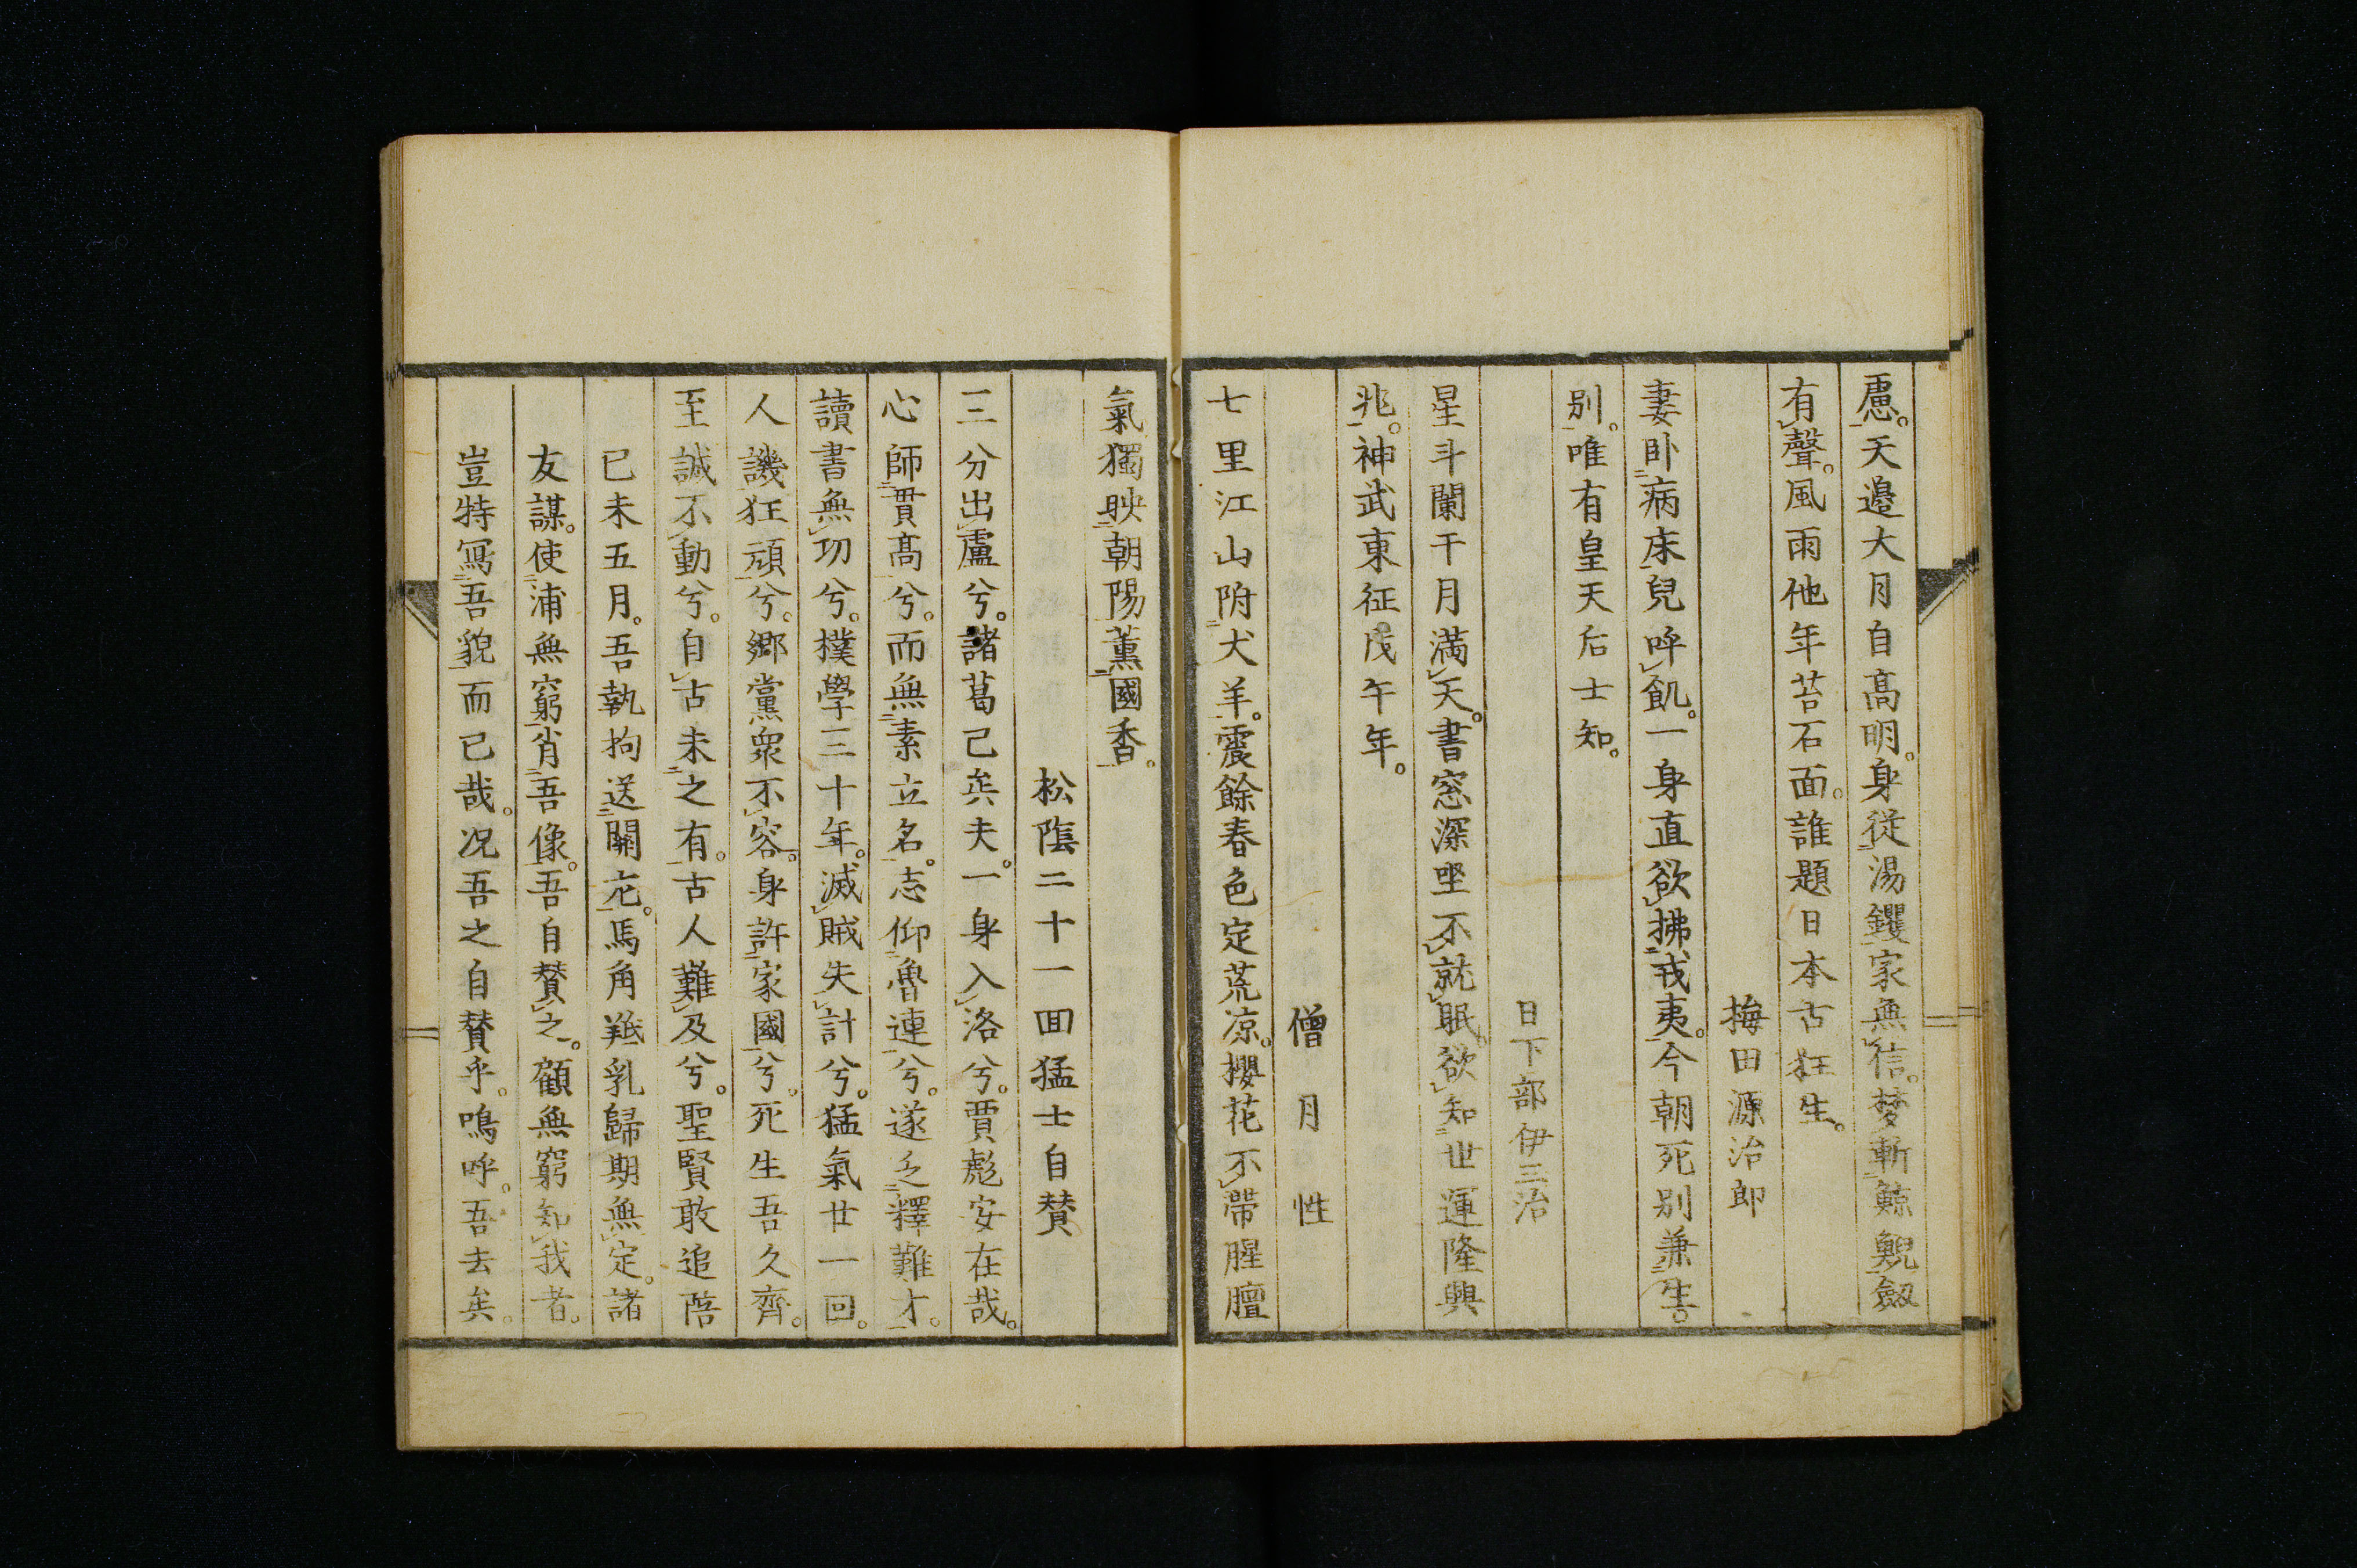 慮。天邉大月自髙明。身從湯鑊家無信。夢斬鯨鯢劔
有聲。風雨他年苔石面。誰題日本古狂生。
梅田源治郎
妻卧病床兒呼飢。一身直欲拂戎夷。今朝死别兼生
别。唯有皇天后士知。
日下部伊三治
星斗闌干月満天。書窓深坐不就眠。欲知世運隆興
兆。神武東征戊午年。
僧月性
七里江山附犬羊。震餘春色定荒凉。櫻花不帶腥膻
氣獨映朝陽薫國香。
松蔭二十一回猛士自賛
三分出盧兮。諸葛已矣夫。一身入洛兮。賈彪安在哉。
心師貫髙兮。而無素立名。志仰魯連兮。遂乏釋難才。
讀書無功兮。樸學三十年。滅賊失計兮。猛氣廿一回。
人譏狂頑兮。郷黨衆不容。身許家國兮。死生吾久齊。
至誠不動兮。自古未之有。古人難及兮。聖賢敢追陪
已未五月。吾執拘送關左。馬角羝乳歸期無定。諸
友謀。使浦無窮肖吾像。吾自賛之。顧無窮知我者。
豈特寫吾貌而已哉。况吾之自賛乎。嗚呼。吾去矣。